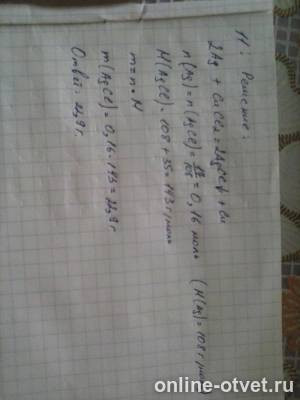 11: Решение:
2Ag + CuCl₂ = 2AgCl↓ + Cu
n(Ag) = n(AgCl) = 17/108 = 0,16 моль (M(Ag) = 108 г/моль)
M(AgCl) = 108 + 35 = 143 г/моль
m = n · M
m(AgCl) = 0,16 · 143 = 22,9 г
Ответ: 22,9 г.
online-otvet.ru